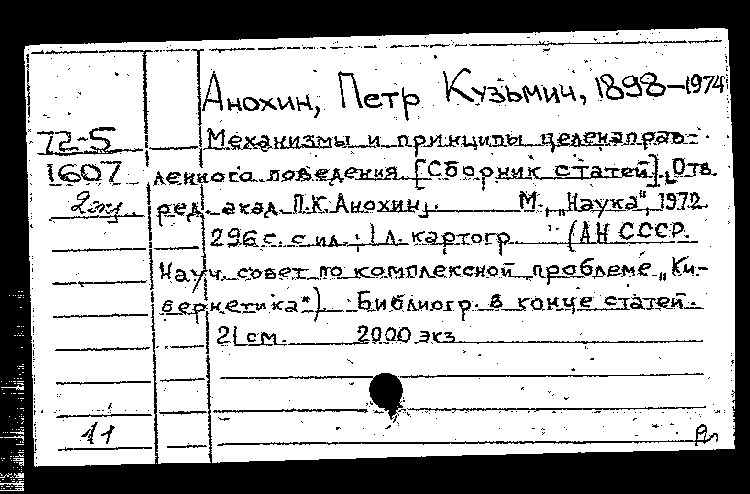 Анохин, Петр Кузьмич, 1898-1974
72-5 Механизмы и принципы целенаправ-
1607 ленного поведения. [Сборник статей]. Отв.
2экз. ред. акад. П.К. Анохин. М., "Наука", 1972.
296 с. с ил.; 1 л. картогр. (АН СССР.
Науч. совет по комплексной проблеме „Ки-
бернетика"). Библиогр. в конце статей.
21 см. 2000 экз
11